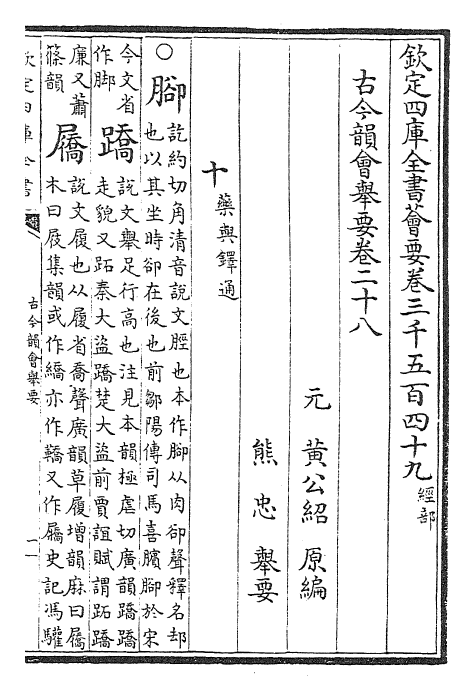 欽定四庫全書薈要卷三千五百四十九 經部
古今韻會舉要卷二十八
元 黃公紹 原編
熊忠 舉要
十 藥與鐸通
○腳 訖約切角清音說文脛也本作腳从肉卻聲釋名却
也以其坐時卻在後也前鄒陽傳司馬喜臏腳於宋
今文省
作脚 蹻 說文舉足行高也注見本韻極虐切廣韻蹻蹻
走貌又跖秦大盜蹻楚大盜前賈誼賦謂跖蹻
廉又蕭
篠韻 屩 說文履也从履省喬聲廣韻草履增韻麻曰屩
木曰屐集韻或作繑亦作鞽又作屩史記馮驩
欽定四庫全書
古今韻會舉要
一